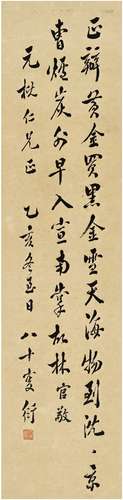 正辦黃金買黑金雪天海物到沈〻京
曹爐炭外早入宣南掌故林官敬
元枕仁兄正 乙亥冬至日 八十叟 衍